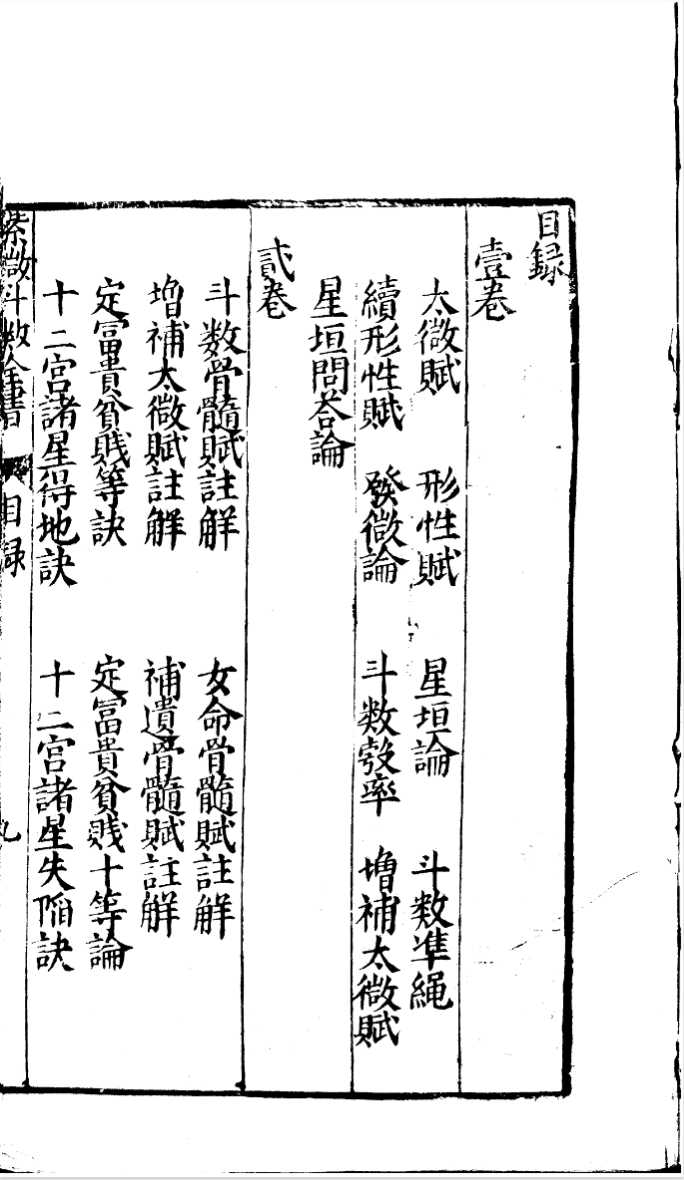 目録
壹卷
太微賦 形性賦 星垣論 斗数準繩
續形性賦 發微論 斗数彀率 增補太微賦
星垣問荅論
貳卷
斗数骨髓賦註解 女命骨髓賦註解
增補太微賦註解 補遺骨髓賦註解
定冨貴貧賎等訣 定冨貴貧賎十等論
十二宮諸星得地訣 十二宮諸星失陷訣
紫微斗数全書 目録 九